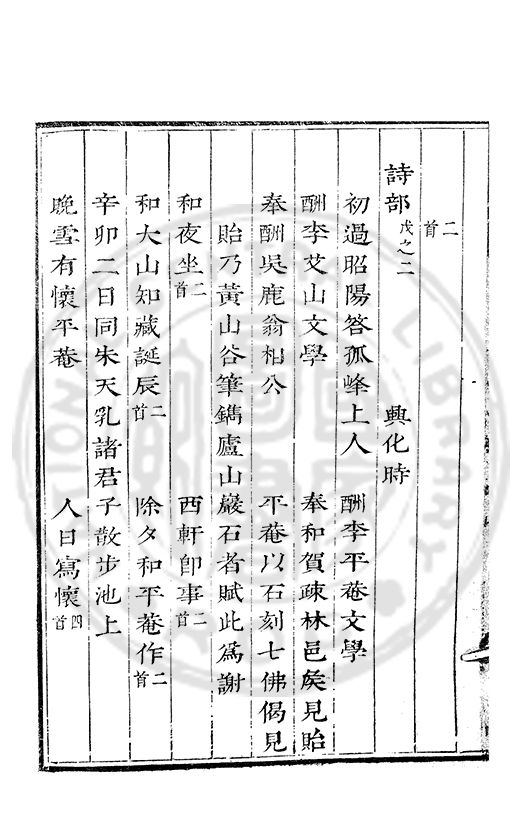 二首
詩部戊之二　興化時
初過昭陽答孤峰上人　酬李平菴文學
酬李艾山文學　奉和賀疎林邑矦見貽
奉酬吳鹿翁相公　平菴以石刻七佛偈見
貽乃黃山谷筆鐫廬山巖石者賦此爲謝
和夜坐二首　西軒卽事二首
和大山知藏誕辰二首　除夕和平菴作二首
辛卯二日同朱天乳諸君子散步池上
晚雪有懷平菴　人日寫懷四首